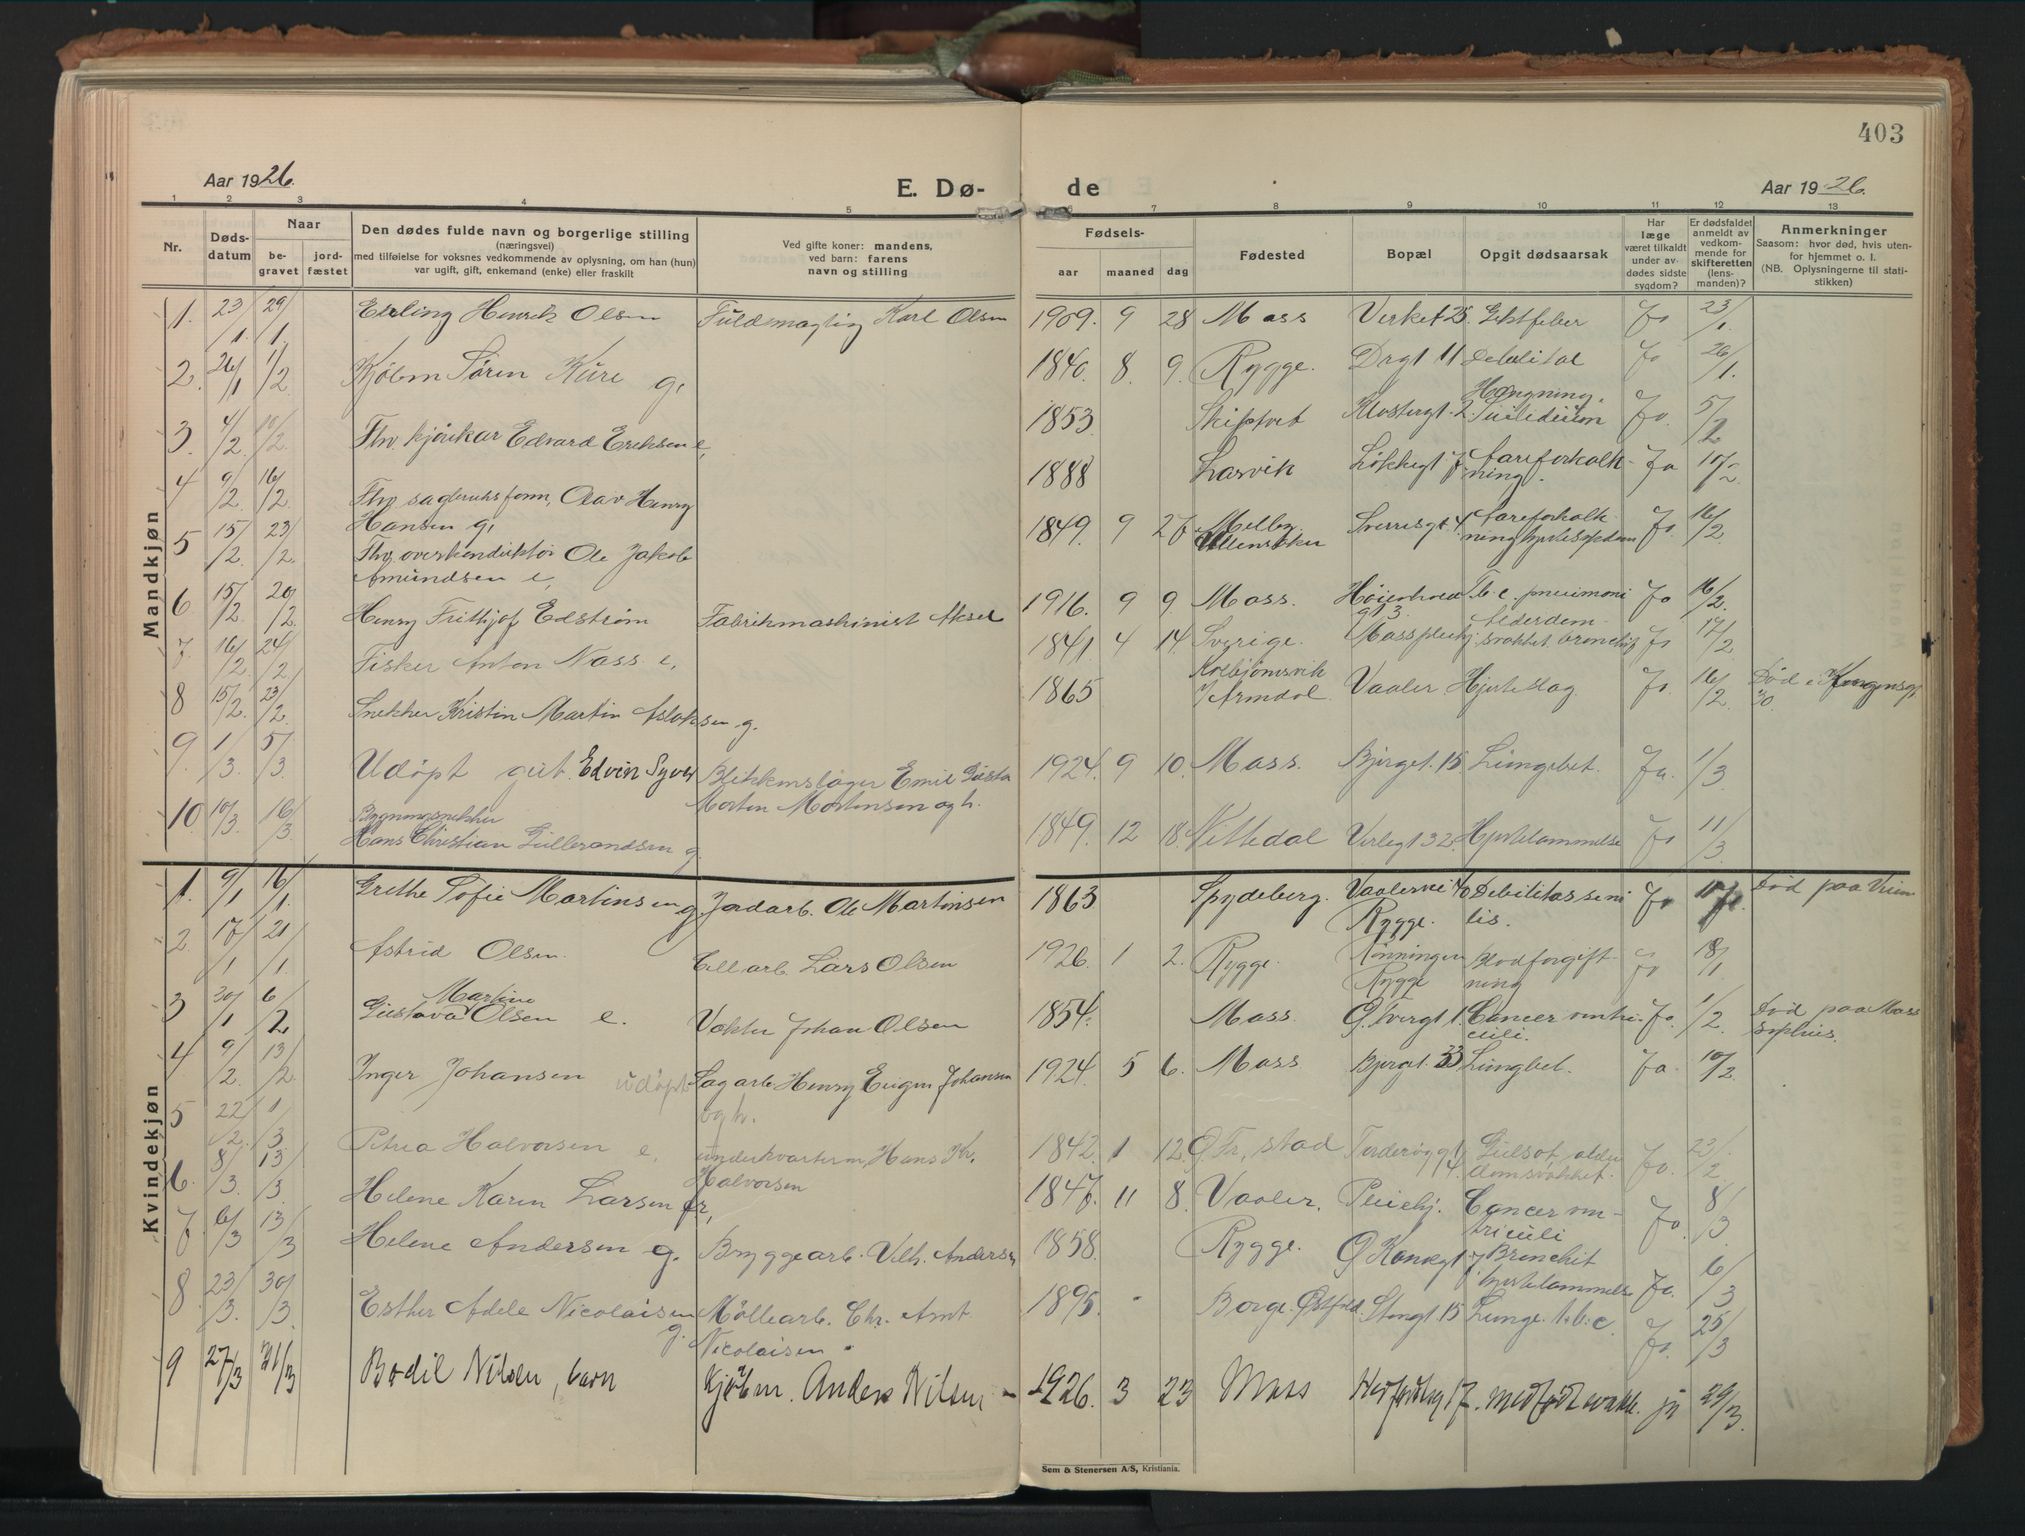 403
Aar 1926.
E. Dø-
de
Aar 1926.
1 2 3 4 5 6 7 8 9 10 11 12 13
Nr.
Døds-
datum
Naar
be-
gravet
jord-
fæstet
Den dødes fulde navn og borgerlige stilling
(næringsvei)
med tilføielse for voksnes vedkommende av oplysning, om han (hun)
var ugift, gift, enkemand (enke) eller fraskilt
Ved gifte koner: mandens,
ved barn: farens
navn og stilling
Fødsels-
aar maaned dag
Fødested
Bopæl
Opgit dødsaarsak
Har
læge
været tilkaldt
under av-
dødes sidste
sygdom?
Er dødsfaldet
anmeldt av
vedkom-
mende for
skifteretten
(lens-
manden)?
Anmerkninger
Saasom: hvor død, hvis uten-
for hjemmet o. l.
(NB. Oplysningerne til stati-
stikken)
Mandkjøn
1. 23/1 29/1 Erling Henrik Olsen Fuldmægtig Karl Olsen 1909. 9 28 Moss Verket 25. Giktfeber Ja 23/1.
2. 26/1 1/2 Kjøbm Søren Kure g, 1840. 8. 9. Rygge. 11 Ja 26/1.
3. 4/2 10/2 Fhv. kjørekar Edvard Eriksen e, 1853 Skiptvet Klostergt. 2. Hængning, Suicidium Ja. 5/2
4 9/2 16/2 Fhv sagbruksform, Olav Henry
Hansen g, 1888 Larvik Løkkegt 7 Aareforkalk-
ning. Ja 10/2
5 15/2 23/2 Fhv, overkonduktør Ole Jakob
Amundsen e, 1849. 9 27 Melby
Ullensaker Sverresgt 4 Aareforkalk-
ning Ja 16/2
6 15/2 20/2 Henry Frithjof Edstrøm Fabrikmaskinist Aksel 1916. 9 9. Moss. Tb. c. pneumoni Ja 16/2.
7. 16/2 24/2 Fisker Anton Nass e, 1841 4 14. Sverige. Moss pleiehj. Alderdom-
svakhet. bronchit Ja 17/2
8 15/2. 23/2 Snekker Kristin Martin Aslaksen g. 1865 Kolbjørnsvik
/Arendal Vaaler. Hjerteslag Ja. 16/2 Død i Kongensgt
20.
9. 1/3 5/3 Udøpt gut. Edvin Syver Blikkenslager Emil Gusta
Morten Mortensen og h. 1924. 9 10. Moss. Bjergt. 15 Lungebet. Ja. 1/3
10. 10/3 16/3 Bygningssnekker
Hans Christian Gullerandsen g 1849. 12 18. Nittedal Verlegt 32. Hjertelammelse Ja 11/3
Kvindekjøn
1. 9/1 16/1 Grethe Sofie Martinsen g, Jordarb. Ole Martinsen 1863 Spydeberg. Vaalerveien 40
Rygge. Debilitas seni
lis. Ja Død paa
2. 17/1 21/1. Astrid Olsen. Cellarb. Lars Olsen 1926. 1 2. Rygge. Rønningen
Rygge Blodforgift-
ning Ja 18/1
3 30/1 6/2 Martine
Gustava Olsen e. Vakter Johan Olsen 1854. Moss. G. Torvgt 1. Cancer ventri-
culi. Ja. 1/2 Død paa Moss
sykehus.
4 9/2 13/2 Inger Johansen udøpt Sagarb. Henry Eugen Johansen
og h. 1924. 5 6. Moss Bjergt. 33 Lungbet. Ja 10/2
5 22/2. 1/3 Petrea Halvorsen e, underkvarterm, Hans Kr.
Halvorsen 1842. 1 12. G Fr, stad Gulsot, alder
domsvakhet. Ja. 23/2
6. 8/3 13/3 Helene Karin Larsen fr, 1847. 11 8. Vaaler. Pleiehj. Cancer ven-
triculi Ja. 8/3
7 6/3 13/3 Helene Andersen g. Bryggearb. Vilh. Andersen 1858. Rygge. Bronchit
hjertelammelse Ja. 6/3
8 23/3. 30/3 Esther Adele Nicolaisen
g. Møllearb. Chr. Amt
Nicolaisen. 1895. - Borge. Østfold. Storgt 15 Lunge. t.b.c. Ja. 25/3
9 27/3 31/3 Bodil Nilsen, barn Kjøbm. Anders Nilsen 1926. 3 23 Moss medfødt svakh. ja 29/3.
Sem & Stenersen A/S, Kristiania.